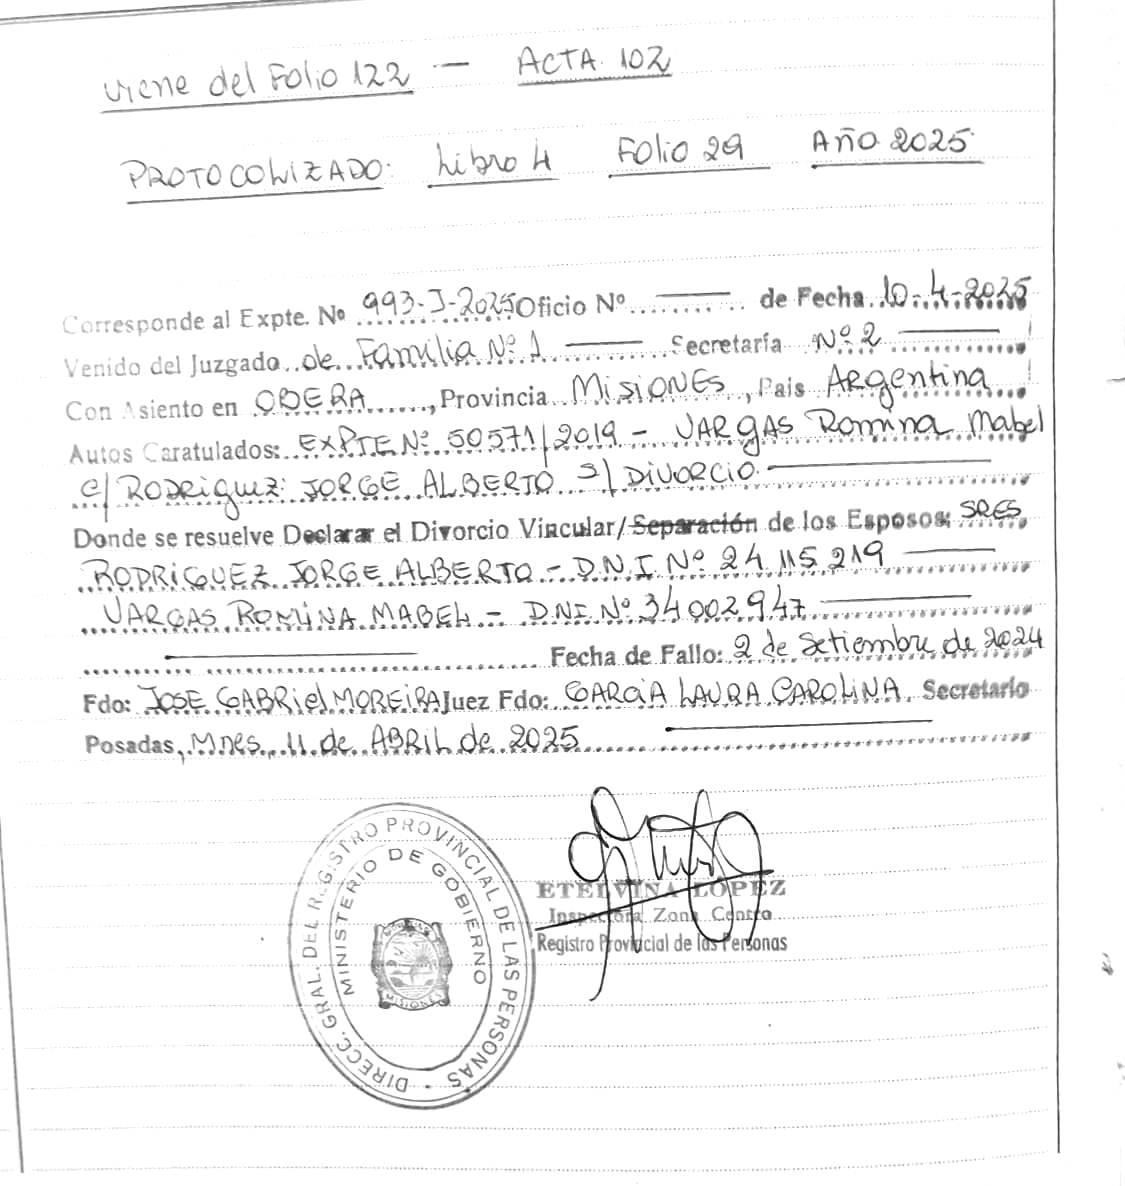 viene del Folio 122 — ACTA 102
PROTOCOLIZADO: Libro 4 Folio 29 AÑO 2025
Corresponde al Expte. No 993-J-2025 Oficio Nº ——— de Fecha 10-4-2025
Venido del Juzgado de Familia Nº 1 ——— Secretaría Nº 2 ———
Con Asiento en OBERA, Provincia MISIONES, Pais ARgentina
Autos Caratulados: EXPTE Nº 50571/2019 - VARGAS Romina Mabel
c/ RODRIGUEZ JORGE ALBERTO s/ DIVORCIO ———
Donde se resuelve Declarar el Divorcio Vincular/Separación de los Esposos: SRES
RODRIGUEZ JORGE ALBERTO - D.N.I. Nº 24.115.219 ———
VARGAS ROMINA MABEL - DNI. Nº 34002947 ———
——— Fecha de Fallo: 2 de Setiembre de 2024
Fdo: JOSE GABRiel MOREIRA Juez Fdo: GARCIA LAURA CAROLINA Secretario
Posadas, Mnes, 11 de ABRIL de 2025 ———
DIRECC. GRAL. DEL REGISTRO PROVINCIAL DE LAS PERSONAS
MINISTERIO DE GOBIERNO
MISIONES
ETELVINA LOPEZ
Inspectora Zona Centro
Registro Provincial de las Personas